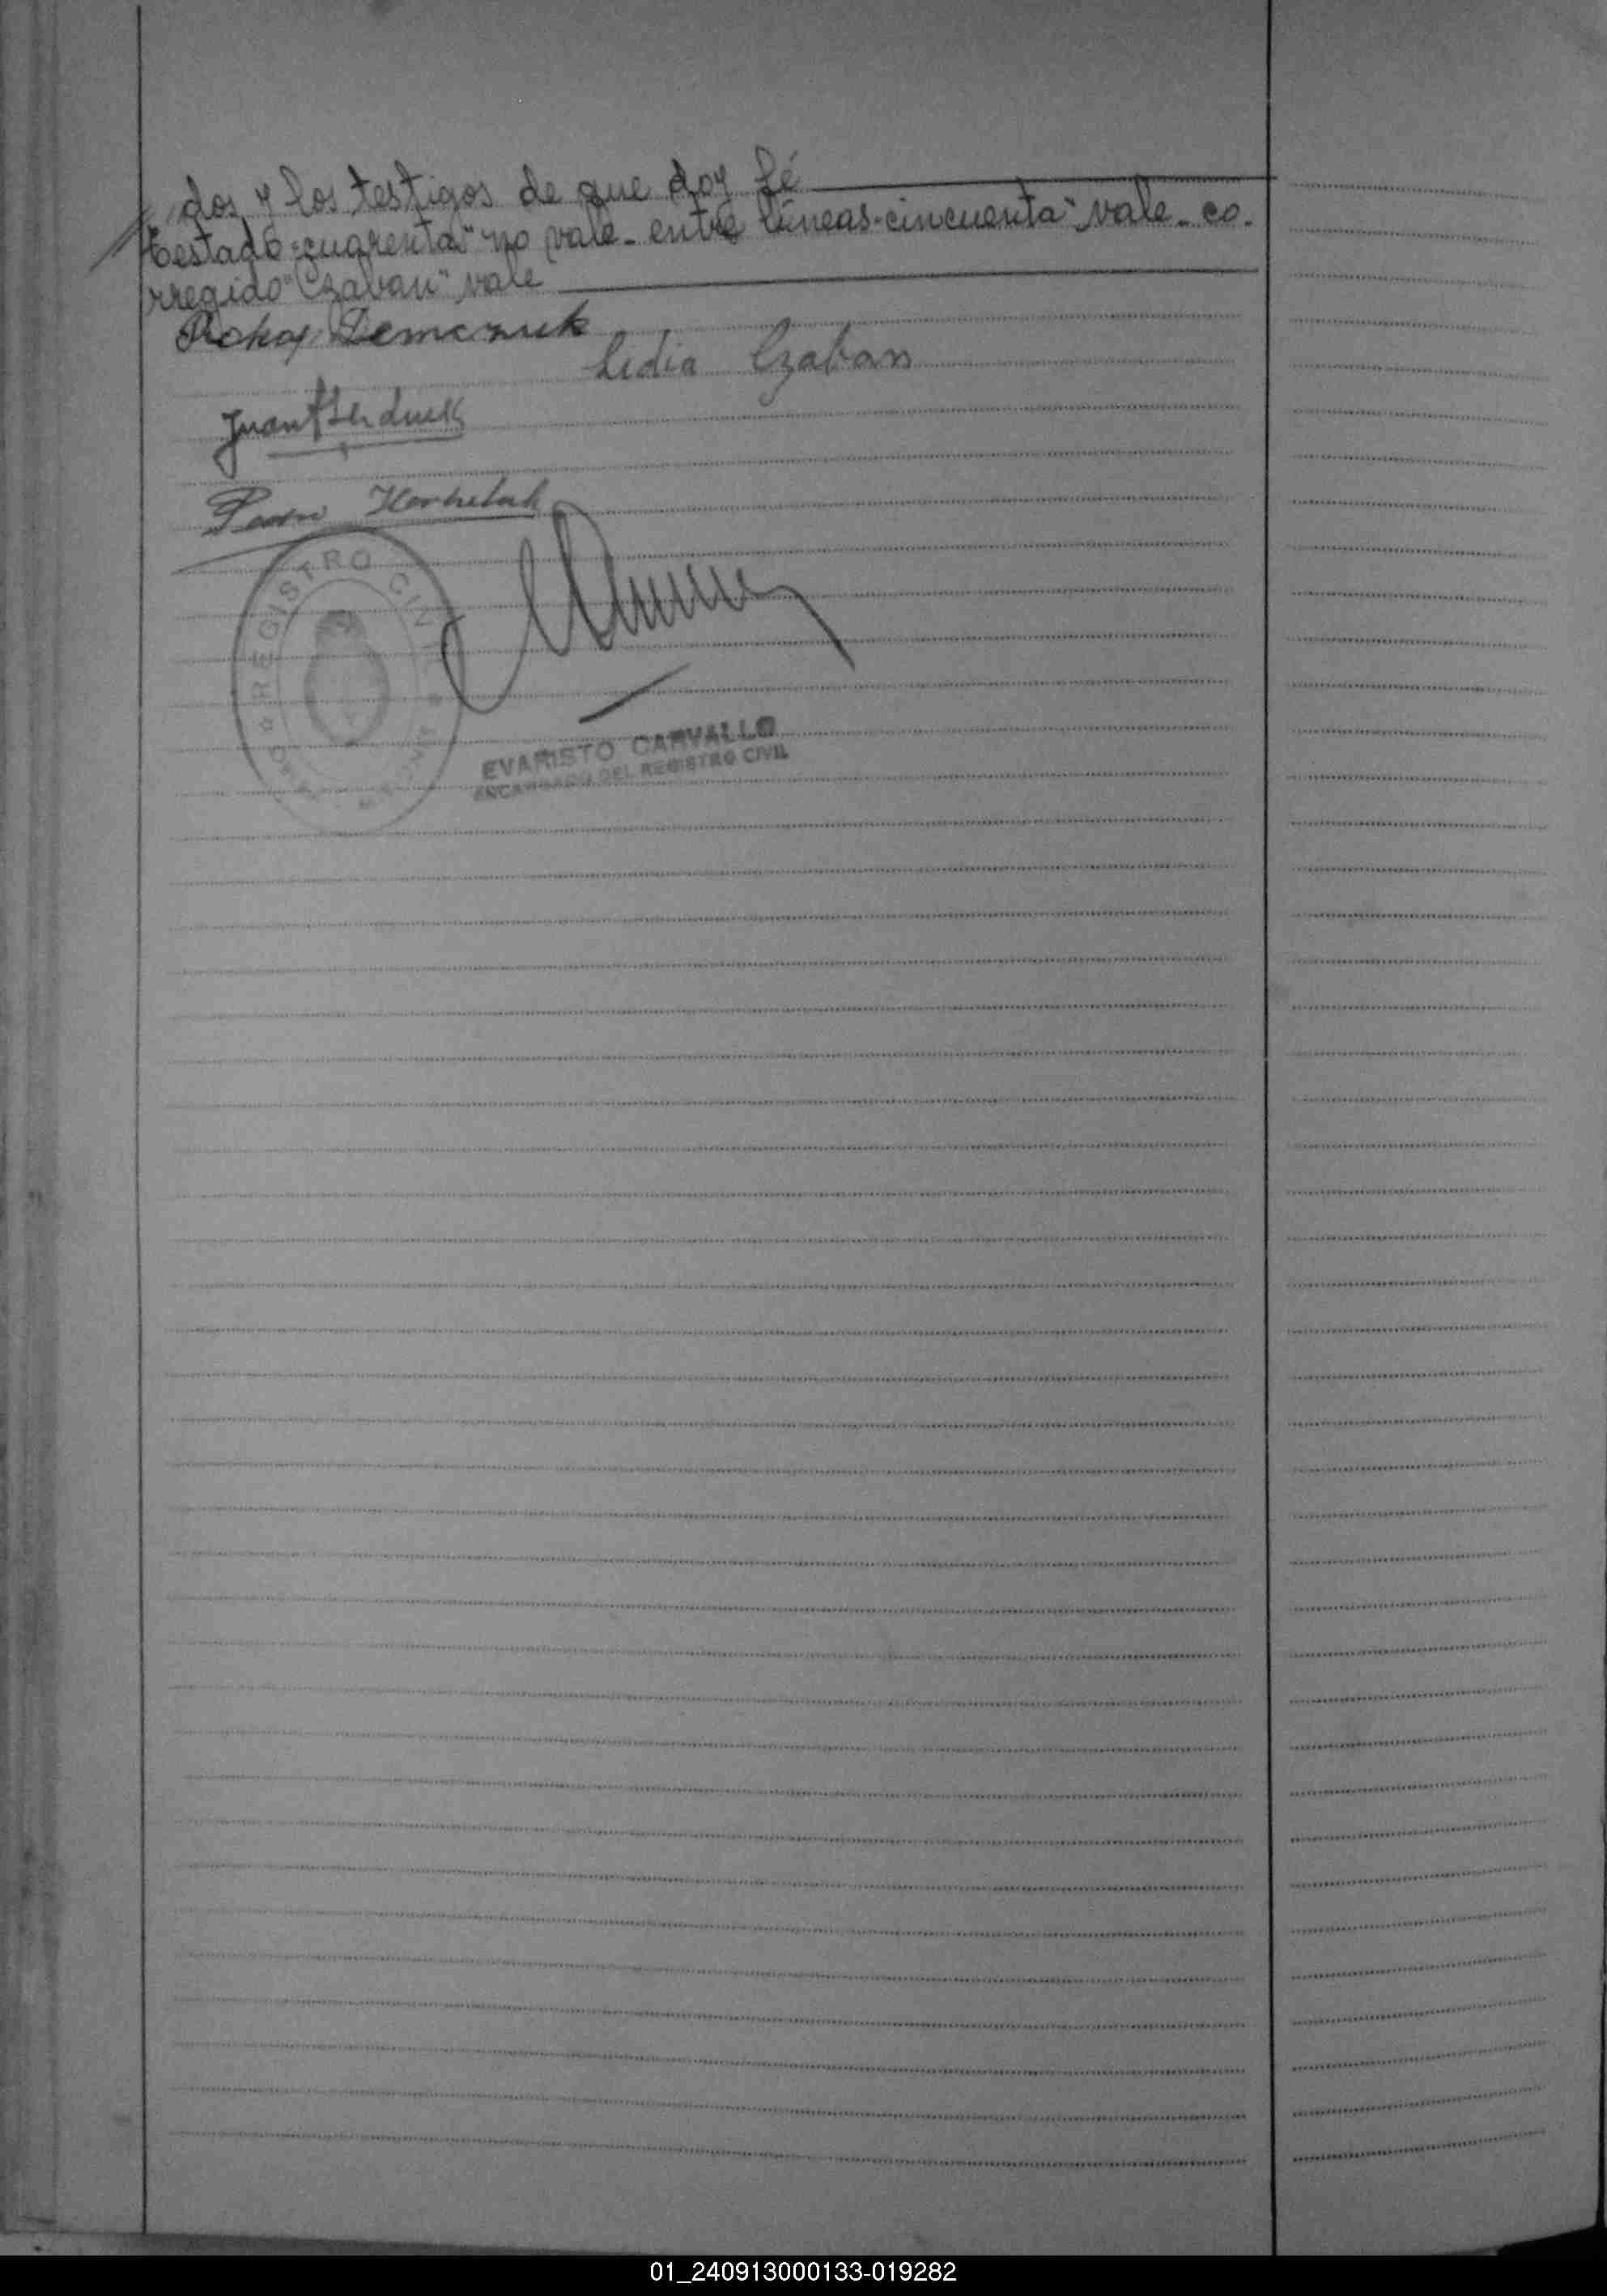 dos y los testigos de que doy fé
testado "cuarenta" no vale - entre líneas - cincuenta" vale - co-
rregido "Czaban" vale
Demczuk
Lidia Czaban
Juan
Pedro
REGISTRO CIVIL
EVARISTO CARVALLO
ENCARGADO DEL REGISTRO CIVIL
01_240913000133-019282